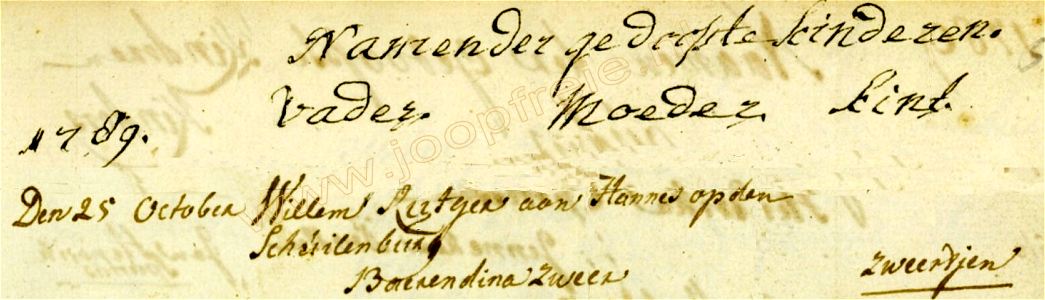 Namen der gedoopte kinderen.
Vader. Moeder. kint.
1789.
Den 25 October Willem Rutger aan Hannes op den
Schuilenburg
Baerendina zweer zweertjen